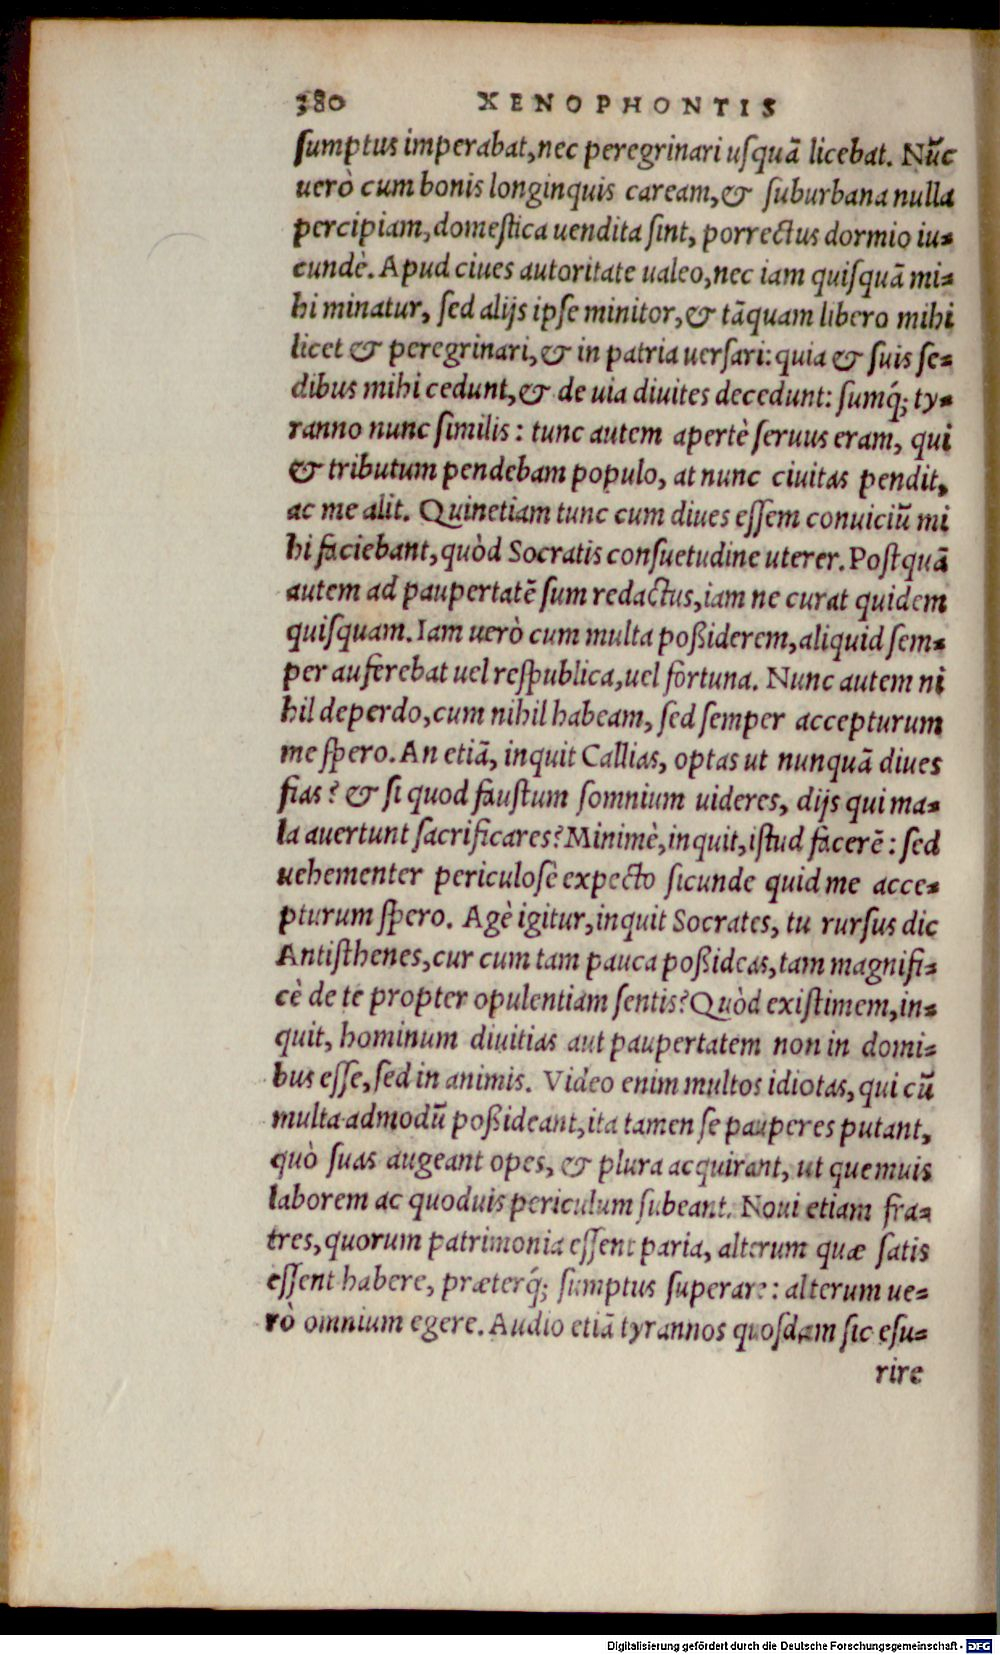 380 XENOPHONTIS
sumptus imperabat, nec peregrinari usquā licebat. Nūc
uerò cum bonis longinquis caream, & suburbana nulla
percipiam, domestica uendita sint, porrectus dormio iu-
cundè. Apud ciues autoritate ualeo, nec iam quisquā mi-
hi minatur, sed alijs ipse minitor, & tāquam libero mihi
licet & peregrinari, & in patria uersari: quia & suis se-
dibus mihi cedunt, & de uia diuites decedunt: sumq́; ty-
ranno nunc similis: tunc autem apertè seruus eram, qui
& tributum pendebam populo, at nunc ciuitas pendit,
ac me alit. Quinetiam tunc cum diues essem conuiciū mi
hi faciebant, quòd Socratis consuetudine uterer. Postquā
autem ad paupertatē sum redactus, iam ne curat quidem
quisquam. Iam uerò cum multa poßiderem, aliquid sem-
per auferebat uel respublica, uel fortuna. Nunc autem ni
hil deperdo, cum nihil habeam, sed semper accepturum
me spero. An etiā, inquit Callias, optas ut nunquā diues
fias? & si quod faustum somnium uideres, dijs qui ma-
la auertunt sacrificares? Minimè, inquit, istud facerē: sed
uehementer periculosè expecto sicunde quid me acce-
pturum spero. Agè igitur, inquit Socrates, tu rursus dic
Antisthenes, cur cum tam pauca poßideas, tam magnifi-
cè de te propter opulentiam sentis? Quòd existimem, in-
quit, hominum diuitias aut paupertatem non in domi-
bus esse, sed in animis. Video enim multos idiotas, qui cū
multa admodū poßideant, ita tamen se pauperes putant,
quò suas augeant opes, & plura acquirant, ut quemuis
laborem ac quoduis periculum subeant. Noui etiam fra-
tres, quorum patrimonia essent paria, alterum quæ satis
essent habere, præterq́; sumptus superare: alterum ue-
rò omnium egere. Audio etiā tyrannos quosdam sic esu-
rire
Digitalisierung gefördert durch die Deutsche Forschungsgemeinschaft - DFG